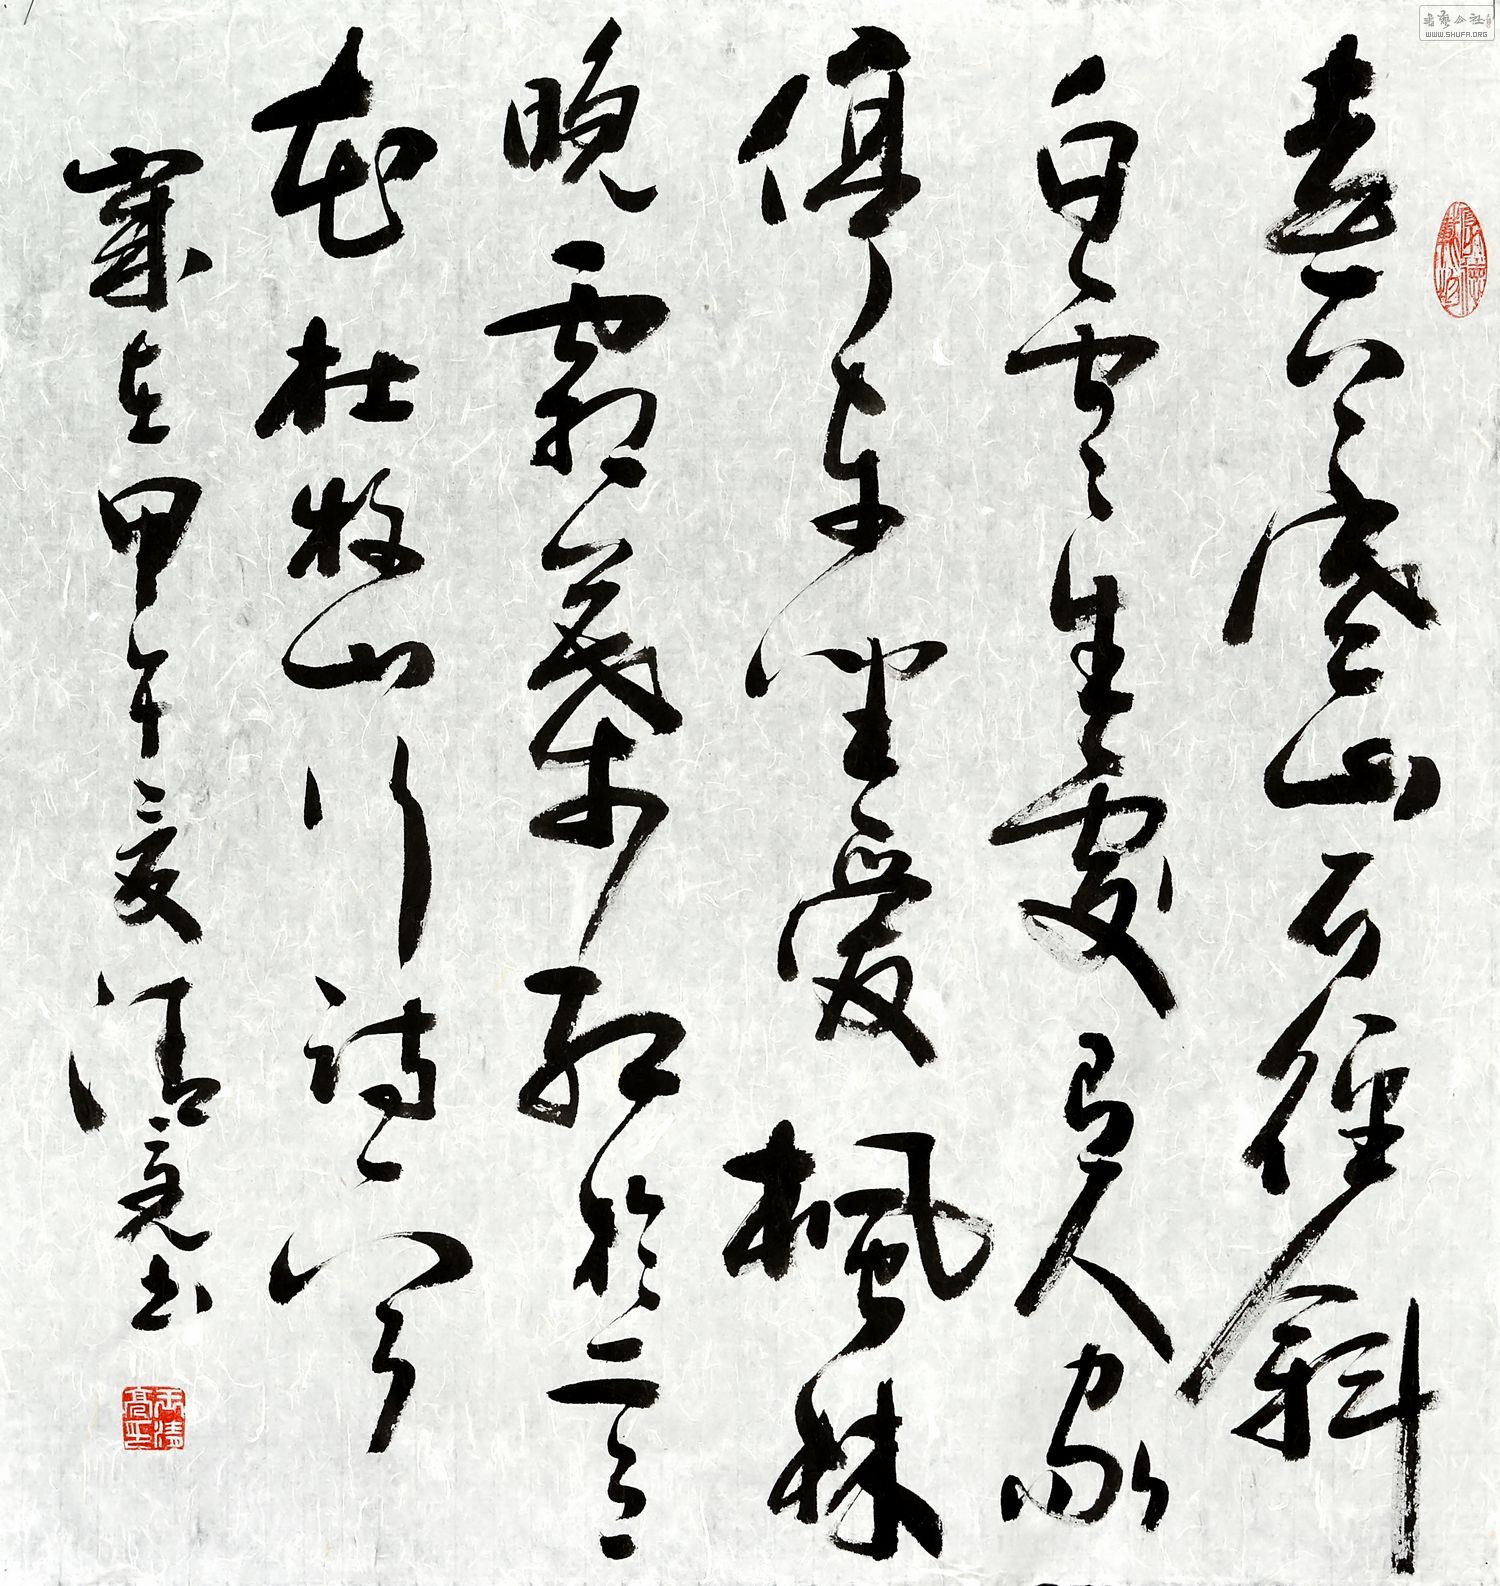 遠上寒山石徑斜
白雲生處有人家
停車坐愛楓林
晚霜葉紅於二月
花杜牧山行詩一首
歲在甲午夏清亮書
書藝公社
WWW.SHUFA.ORG